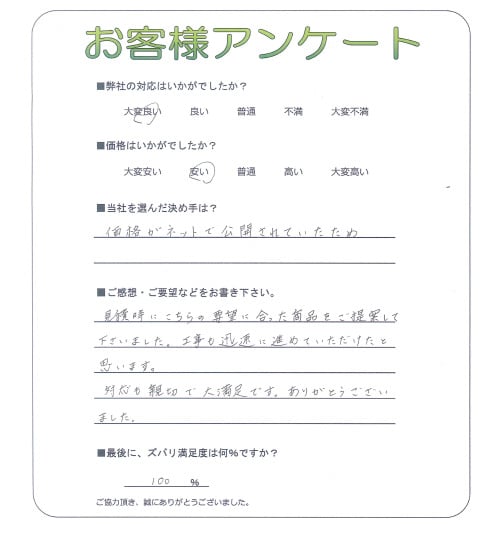 お客様アンケート
■弊社の対応はいかがでしたか？
大変良い 良い 普通 不満 大変不満
■価格はいかがでしたか？
大変安い 安い 普通 高い 大変高い
■当社を選んだ決め手は？
価格がネットで公開されていたため
■ご感想・ご要望などをお書き下さい。
見積時にこちらの要望に合った商品をご提案して
下さいました。工事も迅速に進めていただけたと
思います。
対応も親切で大満足です。ありがとうござい
ました。
■最後に、ズバリ満足度は何％ですか？
100 ％
ご協力頂き、誠にありがとうございました。